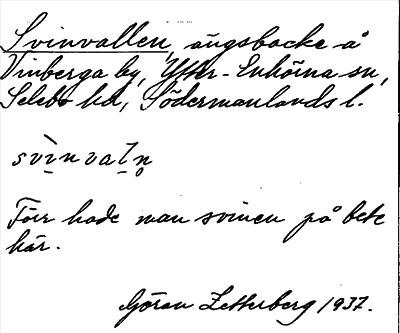 Svinvallen, ängsbacke å
Vinberga by, Ytter-Enhörna sn,
Selebo hd, Södermanlands l.
svìnvaln̥
Förr hade man svinen på bete
här.
Göran Zetterberg 1937.